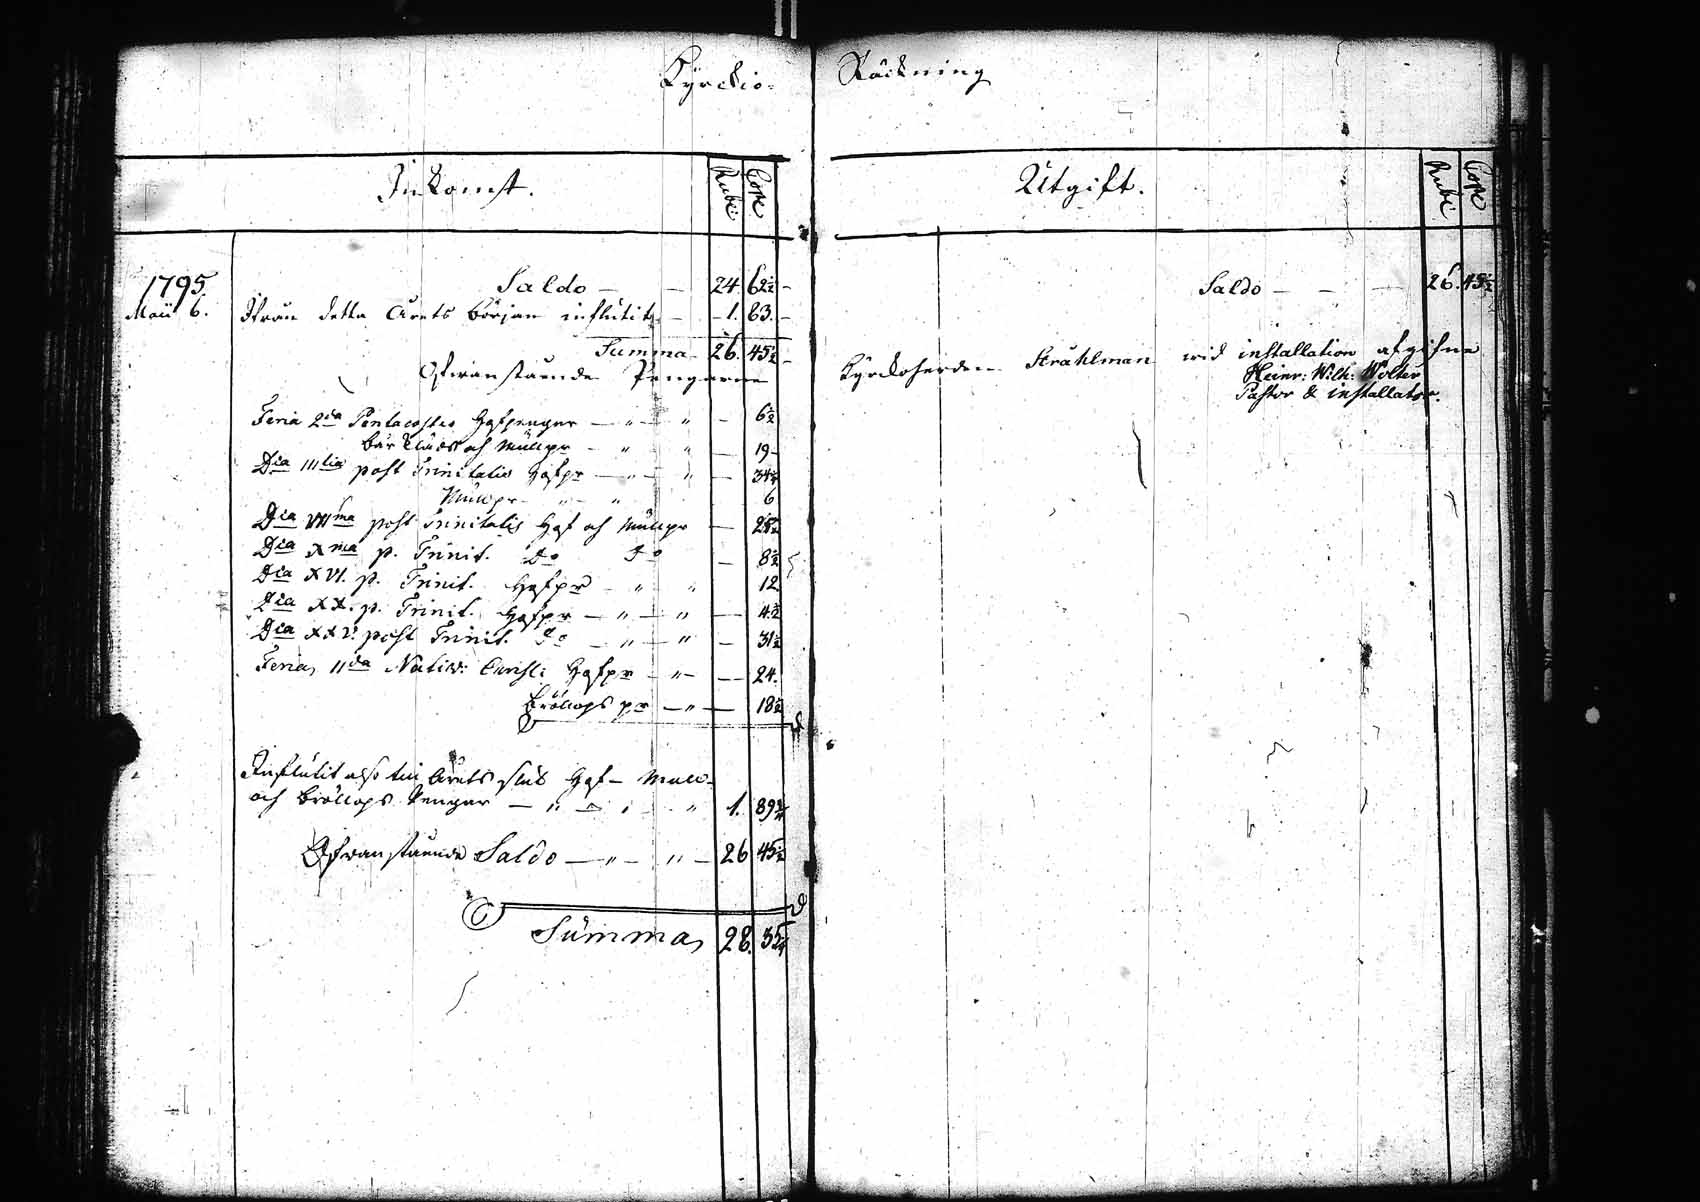 Kyrckio-
Räckning
Inkomst.
Rubl:
Cope
1795.
Saldo — — 24. 62½ —
Maii 6. Ifrån detta Årets början influtit — 1. 83. —
Summa 26. 45½ —
Ofvanstående Pengarne
Feria 2da Pentacostes Håfpengar — " — " — 6½
bårkläds och Mullpr — " " — 19 —
Dca IIItia post Trinitatis Håfpr — " — " — 34½
Mullpr — " — " 6
Dca VIIma post Trinitatis Håf och Mullpr — 25½
Dca Xma p. Trinit. Do Do — 8½
Dca XVI. p. Trinit. Håfpr — " " 12
Dca XX. p. Trinit. Håfpr — " — " — 4½
Dca XXV. post Trinit. Do — " — " — 31½
Feria IIda Nativ: Christi Håfpr — " — 24.
Bröllops pr — " — 18½
Influtit also till Årets slut Håf- Mull-
och Bröllops Pengar — " — " " 1. 89¾
Ofvanstående Saldo — " — " — 26 45½
Summa 28. 35¼
Utgift.
Rubl:
Cope
Saldo — — — 26. 45½
Kyrckoherden Stråhlman wid installation afgifne
Heinr: Wilh: Wolter
Pastor & installator.